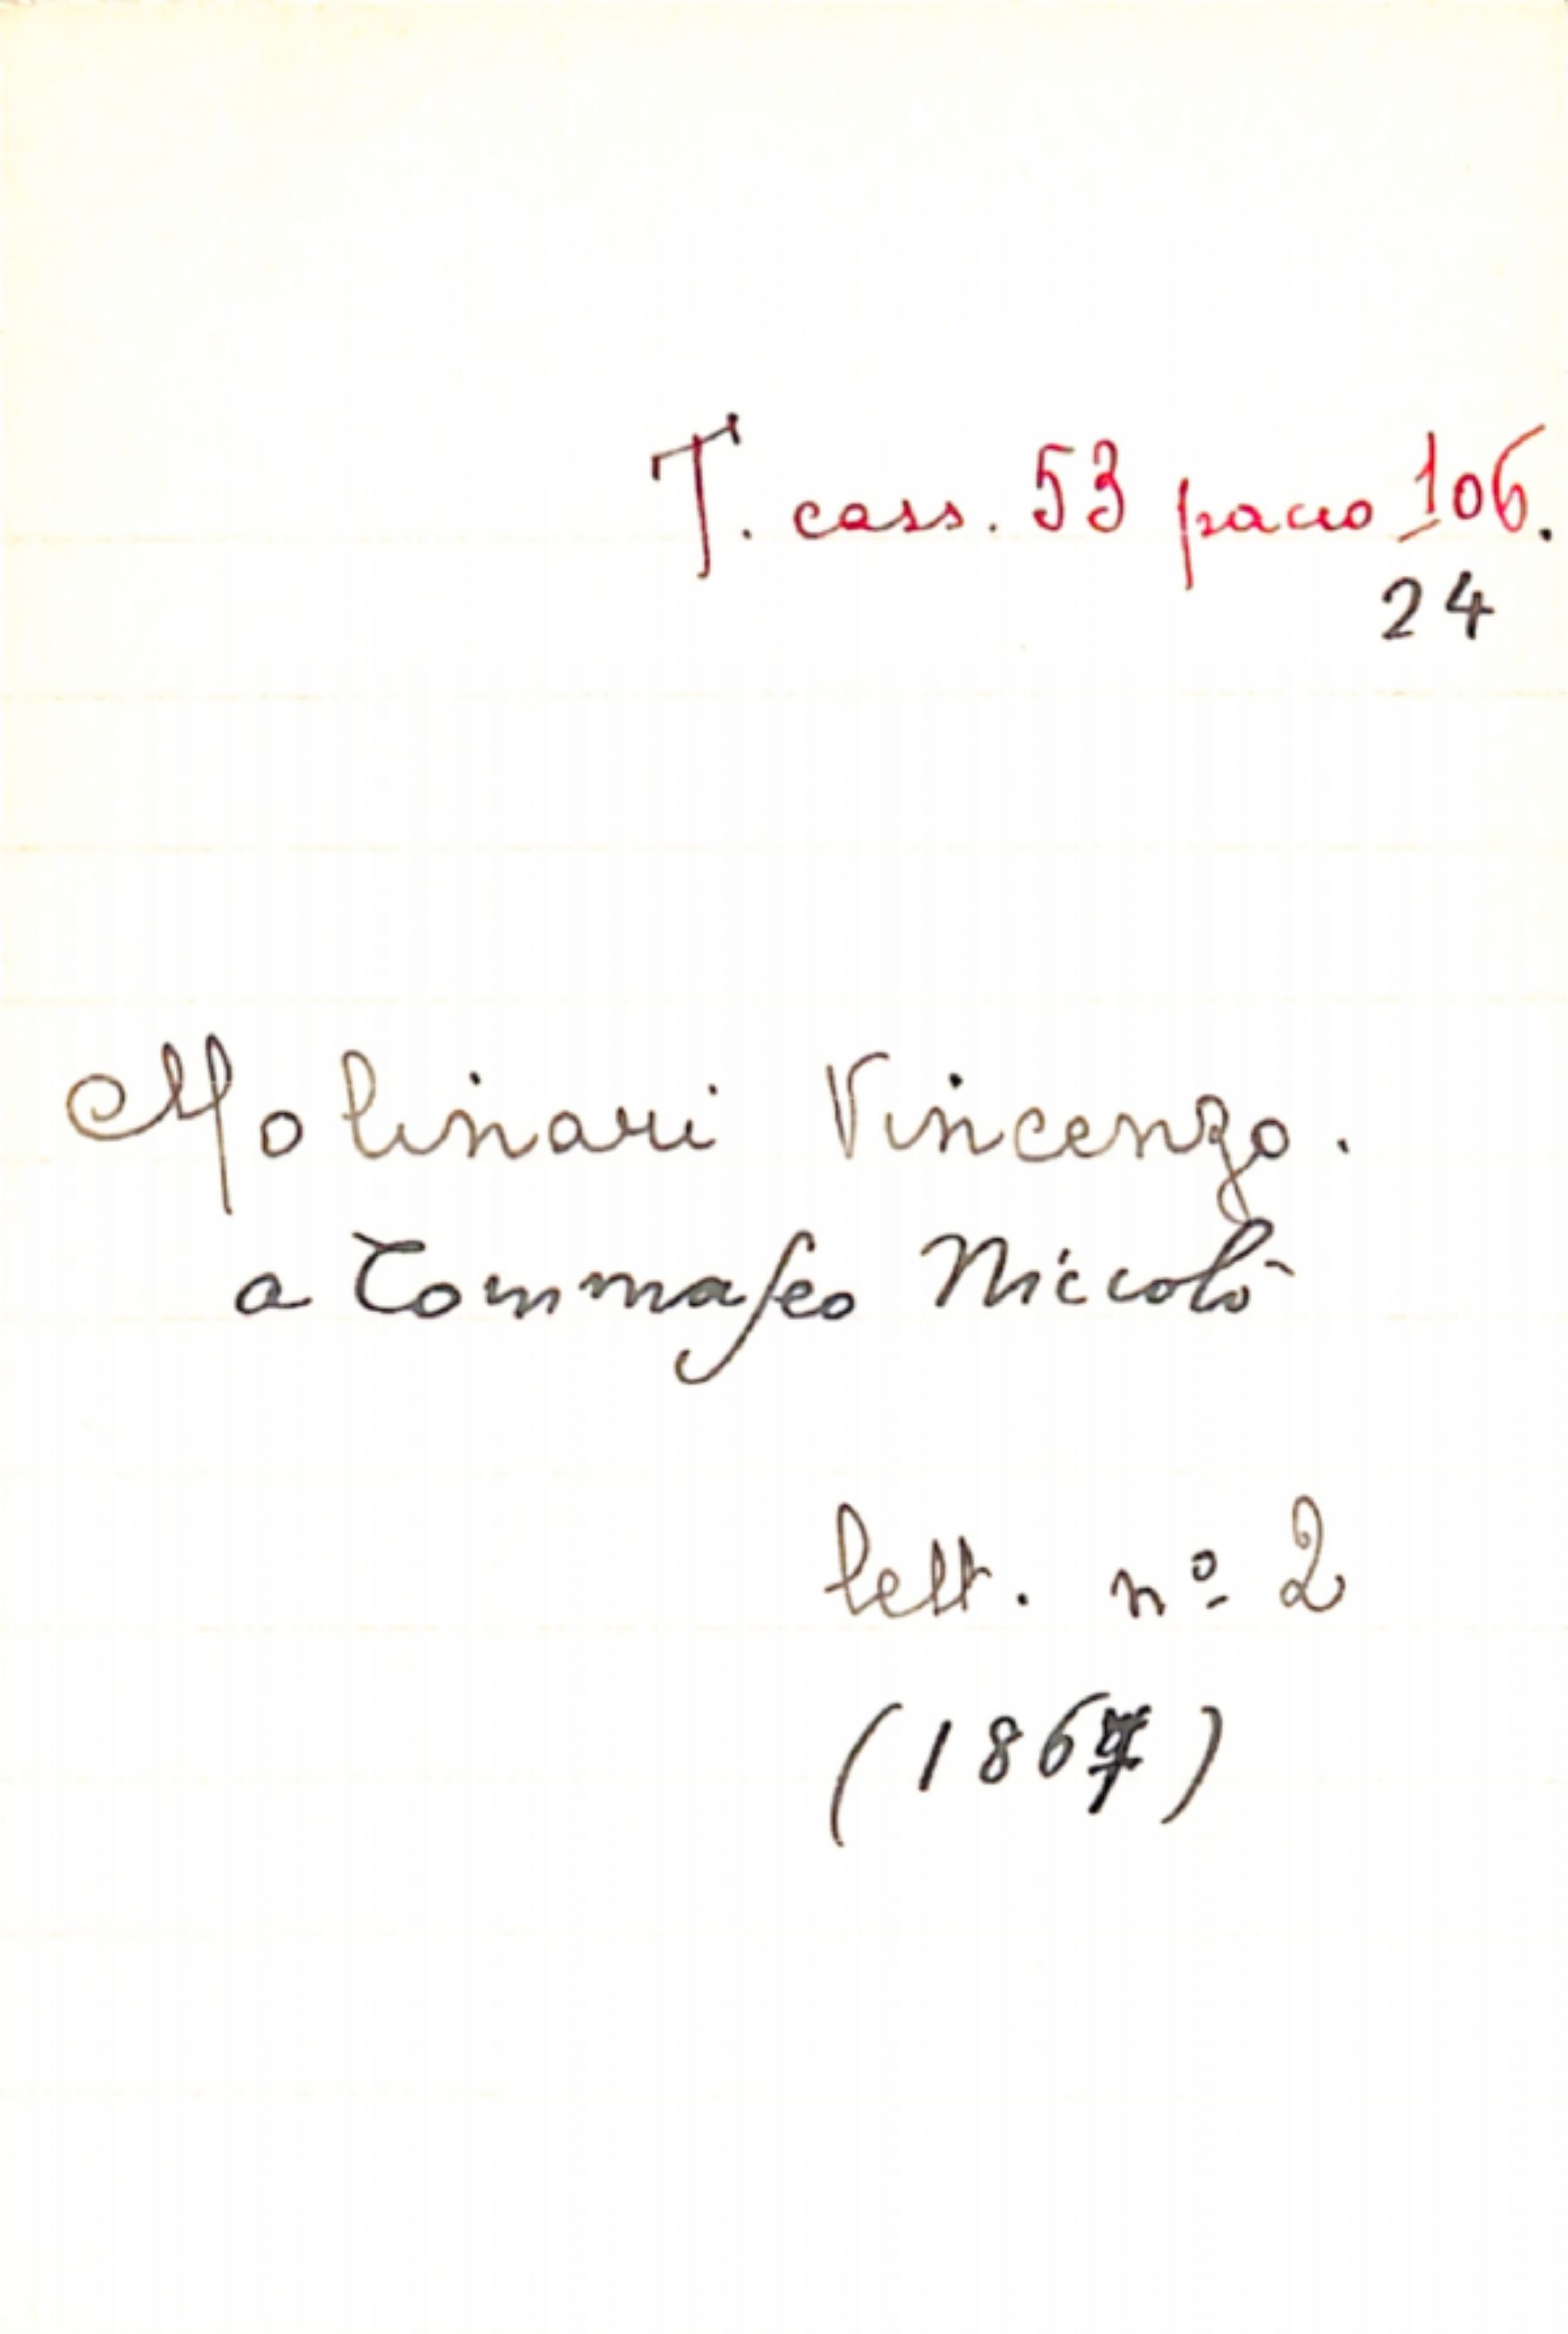 T. cass. 53 pacco 106.
24
Molinari Vincenzo.
a Tommaseo Niccolò
lett. nº 2
(1867)